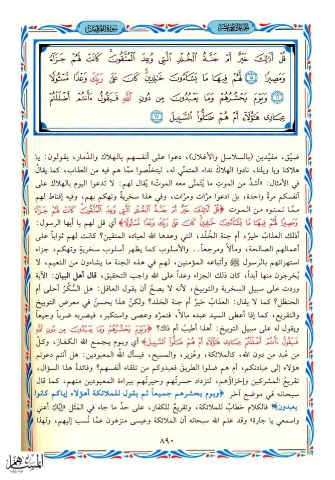 الجزء الثامن عشر
سورة الفرقان
قُلْ أَذَٰلِكَ خَيْرٌ أَمْ جَنَّةُ الْخُلْدِ الَّتِي وُعِدَ الْمُتَّقُونَ كَانَتْ لَهُمْ جَزَاءً
وَمَصِيرًا ١٥ لَهُمْ فِيهَا مَا يَشَاءُونَ خَالِدِينَ كَانَ عَلَىٰ رَبِّكَ وَعْدًا مَسْئُولًا
١٦ وَيَوْمَ يَحْشُرُهُمْ وَمَا يَعْبُدُونَ مِنْ دُونِ اللَّهِ فَيَقُولُ ءَأَنْتُمْ أَضْلَلْتُمْ
عِبَادِي هَٰؤُلَاءِ أَمْ هُمْ ضَلُّوا السَّبِيلَ ١٧
ضيّق، مقيّدين (بالسلاسل والأغلال)، دعوا على أنفسهم بالهلاك والدّمار، يقولون: يا
هلاكنا ويا ويلنا، نادوا الهلاك نداء المتمنّي له، ليتخلّصوا ممّا هم فيه من العذاب، كما يقال
في الأمثال: «أشدّ من الموت ما يُتمنّى معه الموت» يُقال لهم: لا تدعوا اليوم بالهلاك على
أنفسكم مرة واحدة، بل ادعوا مرّات ومرّات، وفي هذا سخرية وتهكم بهم، وفيه إقناط لهم
ممّا تمنّوه من الموت ﴿قُلْ أَذَٰلِكَ خَيْرٌ أَمْ جَنَّةُ الْخُلْدِ الَّتِي وُعِدَ الْمُتَّقُونَ كَانَتْ لَهُمْ جَزَاءً
وَمَصِيرًا لَهُمْ فِيهَا مَا يَشَاءُونَ خَالِدِينَ كَانَ عَلَىٰ رَبِّكَ وَعْدًا مَسْئُولًا﴾ أي قل لهم يا أيها الرسول:
أذلك العذاب خيرٌ، أم جنة الخُلد، التي وعدها الله لعباده المتقين؟ كانت لهم ثواباً على
أعمالهم الصالحة، ومآلاً ومرجعاً.. والأسلوب كما يظهر أسلوب سخرية وتهكم، جزاء
استهزائهم بالرسول ﷺ وأتباعه المؤمنين، لهم في هذه الجنة ما يشاءون من النعيم، لا
يُخرجون منها أبداً، كان ذلك الجزاء وعداً على الله واجب التحقيق، قال أهل البيان: الآية
وردت على سبيل السخرية والتوبيخ، لأنه لا يصحّ أن يقول العاقل: هل السُّكَّر أحلى أم
الحنظل؟ كما لا يقال: العذاب خيرٌ أم جنة الخلد؟ ولكنّ هذا يحسنُ في معرض التوبيخ
والتقريع، كما إذا أعطى السيد عبده مالاً، فتمرّد وعصى واستكبر، فيضربه ضرباً وجيعاً
ويقول له على سبيل التوبيخ: أهذا أطيب أم ذاك؟ ﴿وَيَوْمَ يَحْشُرُهُمْ وَمَا يَعْبُدُونَ مِنْ دُونِ اللَّهِ
فَيَقُولُ ءَأَنْتُمْ أَضْلَلْتُمْ عِبَادِي هَٰؤُلَاءِ أَمْ هُمْ ضَلُّوا السَّبِيلَ﴾ أي ويوم يجمع الله الكفار، وكلّ
من عُبد من دون الله، كالملائكة، وعُزير، والمسيح، فيسأل الله المعبودين: هل أنتم دعوتم
هؤلاء إلى عبادتكم، أم هم ضلوا الطريق فعبدوكم من تلقاء أنفسهم؟ وفائدة هذا السؤال،
تقريعُ المشركين وإخزاؤهم، لتزداد حسرتُهم وحيرتُهم ببراءة المعبودين منهم، كما قال
سبحانه في موضع آخر ﴿ويوم يحشرهم جميعاً ثم يقول للملائكة أهؤلاء إياكم كانوا
يعبدون﴾ فالكلام خطابٌ للملائكة، وتقريعٌ للكفار، على حدّ ما جاء في المثل «إياكِ أعني
واسمعي يا جارة» وقد علم الله سبحانه أن الملائكة وعيسى منزهون عمّا نُسب إليهم، ولهذا
٨٩٠